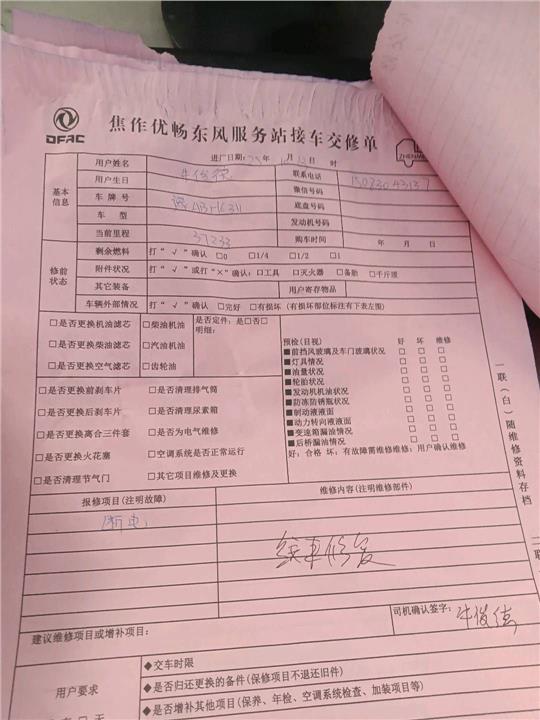 DFAC
焦作优畅东风服务站接车交修单
进厂日期: 年 月 日 时
基本信息
用户姓名 联系电话
用户生日 微信号码
车牌号 底盘号码
车型 发动机号码
当前里程 37233 购车时间 年 月 日
修前状态
剩余燃料 打“√”确认 □0 □1/4 □1/2 □1
附件状况 打“√”或打“×”确认:□工具 □灭火器 □备胎 □千斤顶
其它装备 用户寄存物品
车辆外部情况 打“√”确认 □完好 □有损坏(有损坏部位标注有下表左图)
□是否更换机油滤芯 □柴油机油 是否定件:是□否□
明细:
□是否更换柴油滤芯 □汽油机油
□是否更换空气滤芯 □齿轮油
□是否更换前刹车片 □是否清理排气筒
□是否更换后刹车片 □是否清理尿素箱
□是否更换离合三件套 □是否为电气维修
□是否更换火花塞 □空调系统是否正常运行
□是否清理节气门 □其它项目维修及更换
预检(目视) 好 坏 维修
■前挡风玻璃及车门玻璃状况 □ □ □
■灯具情况 □ □ □
■油量状况 □ □ □
■轮胎状况 □ □ □
■发动机机油状况 □ □ □
■防冻防锈瓶状况 □ □ □
■制动液液面 □ □ □
■动力转向液液面 □ □ □
■变速箱漏油情况 □ □ □
■后桥漏油情况 □ □ □
好:合格 坏:有故障需维修维修:用户确认维修
一联(白)随维修资料存档
报修项目(注明故障) 维修内容(注明维修部件)
断电
线束修复
司机确认签字: 牛俊德
建议维修项目或增补项目:
用户要求
◆交车时限
◆是否归还更换的备件(保修项目不退还旧件)
◆是否增补其他项目(保养、年检、空调系统检查、加装项目等)